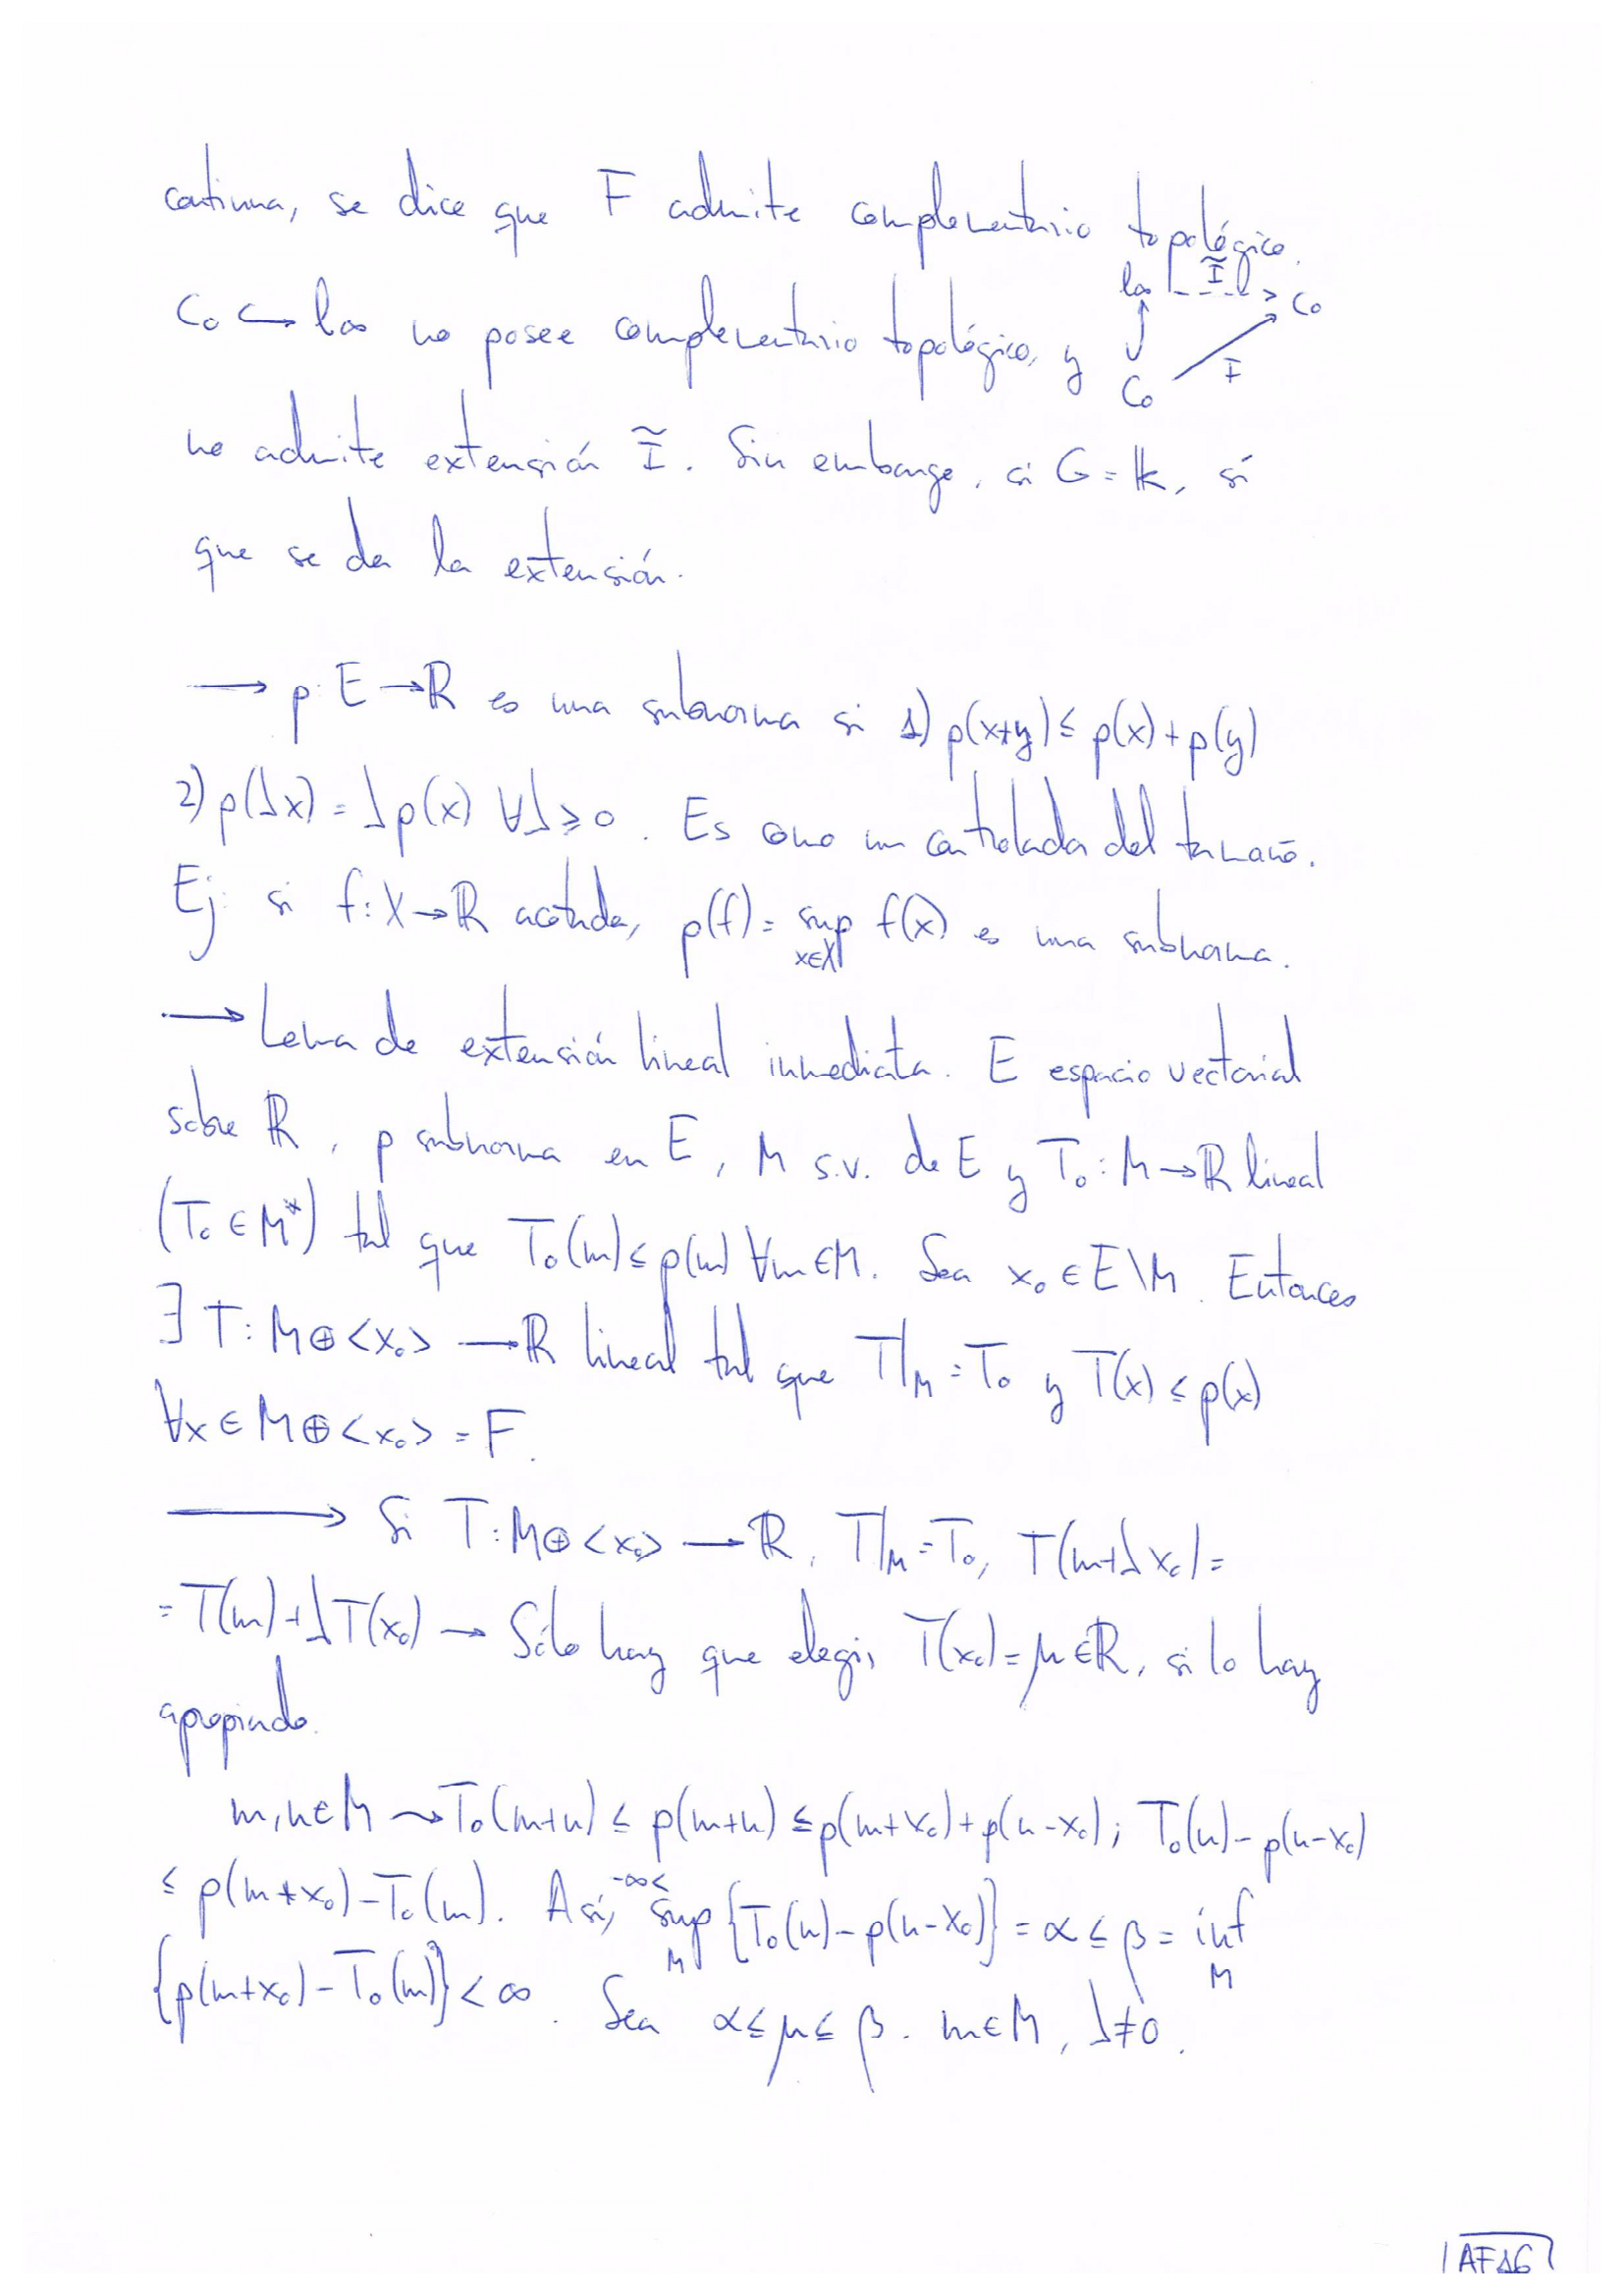 continua, se dice que F admite complementario topológico.
C₀ ↪ l∞ no posee complementario topológico, y
l∞ Ĩ C₀
C₀ I
no admite extensión Ĩ. Sin embargo, si G = 𝕜, sí
que se da la extensión.
⟶ p: E → ℝ es una subnorma si 1) p(x+y) ≤ p(x) + p(y)
2) p(λx) = λp(x) ∀λ ≥ 0. Es como un del tamaño.
Ej: si f: X → ℝ acotada, p(f) = sup_{x∈X} f(x) es una subnorma.
⟶ Lema de extensión lineal inmediata. E espacio vectorial
sobre ℝ, p subnorma en E, M s.v. de E y T₀: M → ℝ lineal
(T₀ ∈ M*) tal que T₀(m) ≤ p(m) ∀m ∈ M. Sea x₀ ∈ E\M. Entonces
∃ T: M ⊕ <x₀> ⟶ ℝ lineal tal que T|_M = T₀ y T(x) ≤ p(x)
∀x ∈ M ⊕ <x₀> = F.
⟶ Si T: M ⊕ <x₀> ⟶ ℝ, T|_M = T₀, T(m+λx₀) =
= T(m) + λT(x₀) → Sólo hay que elegir T(x₀) = μ ∈ ℝ, si lo hay
apropiado.
m, n ∈ M ⇝ T₀(m+n) ≤ p(m+n) ≤ p(m+x₀) + p(n-x₀); T₀(n) - p(n-x₀)
≤ p(m+x₀) - T₀(m). Así, -∞ < sup_M {T₀(n) - p(n-x₀)} = α ≤ β = inf_M
{p(m+x₀) - T₀(m)} < ∞. Sea α ≤ μ ≤ β. m ∈ M, λ ≠ 0.
AF16